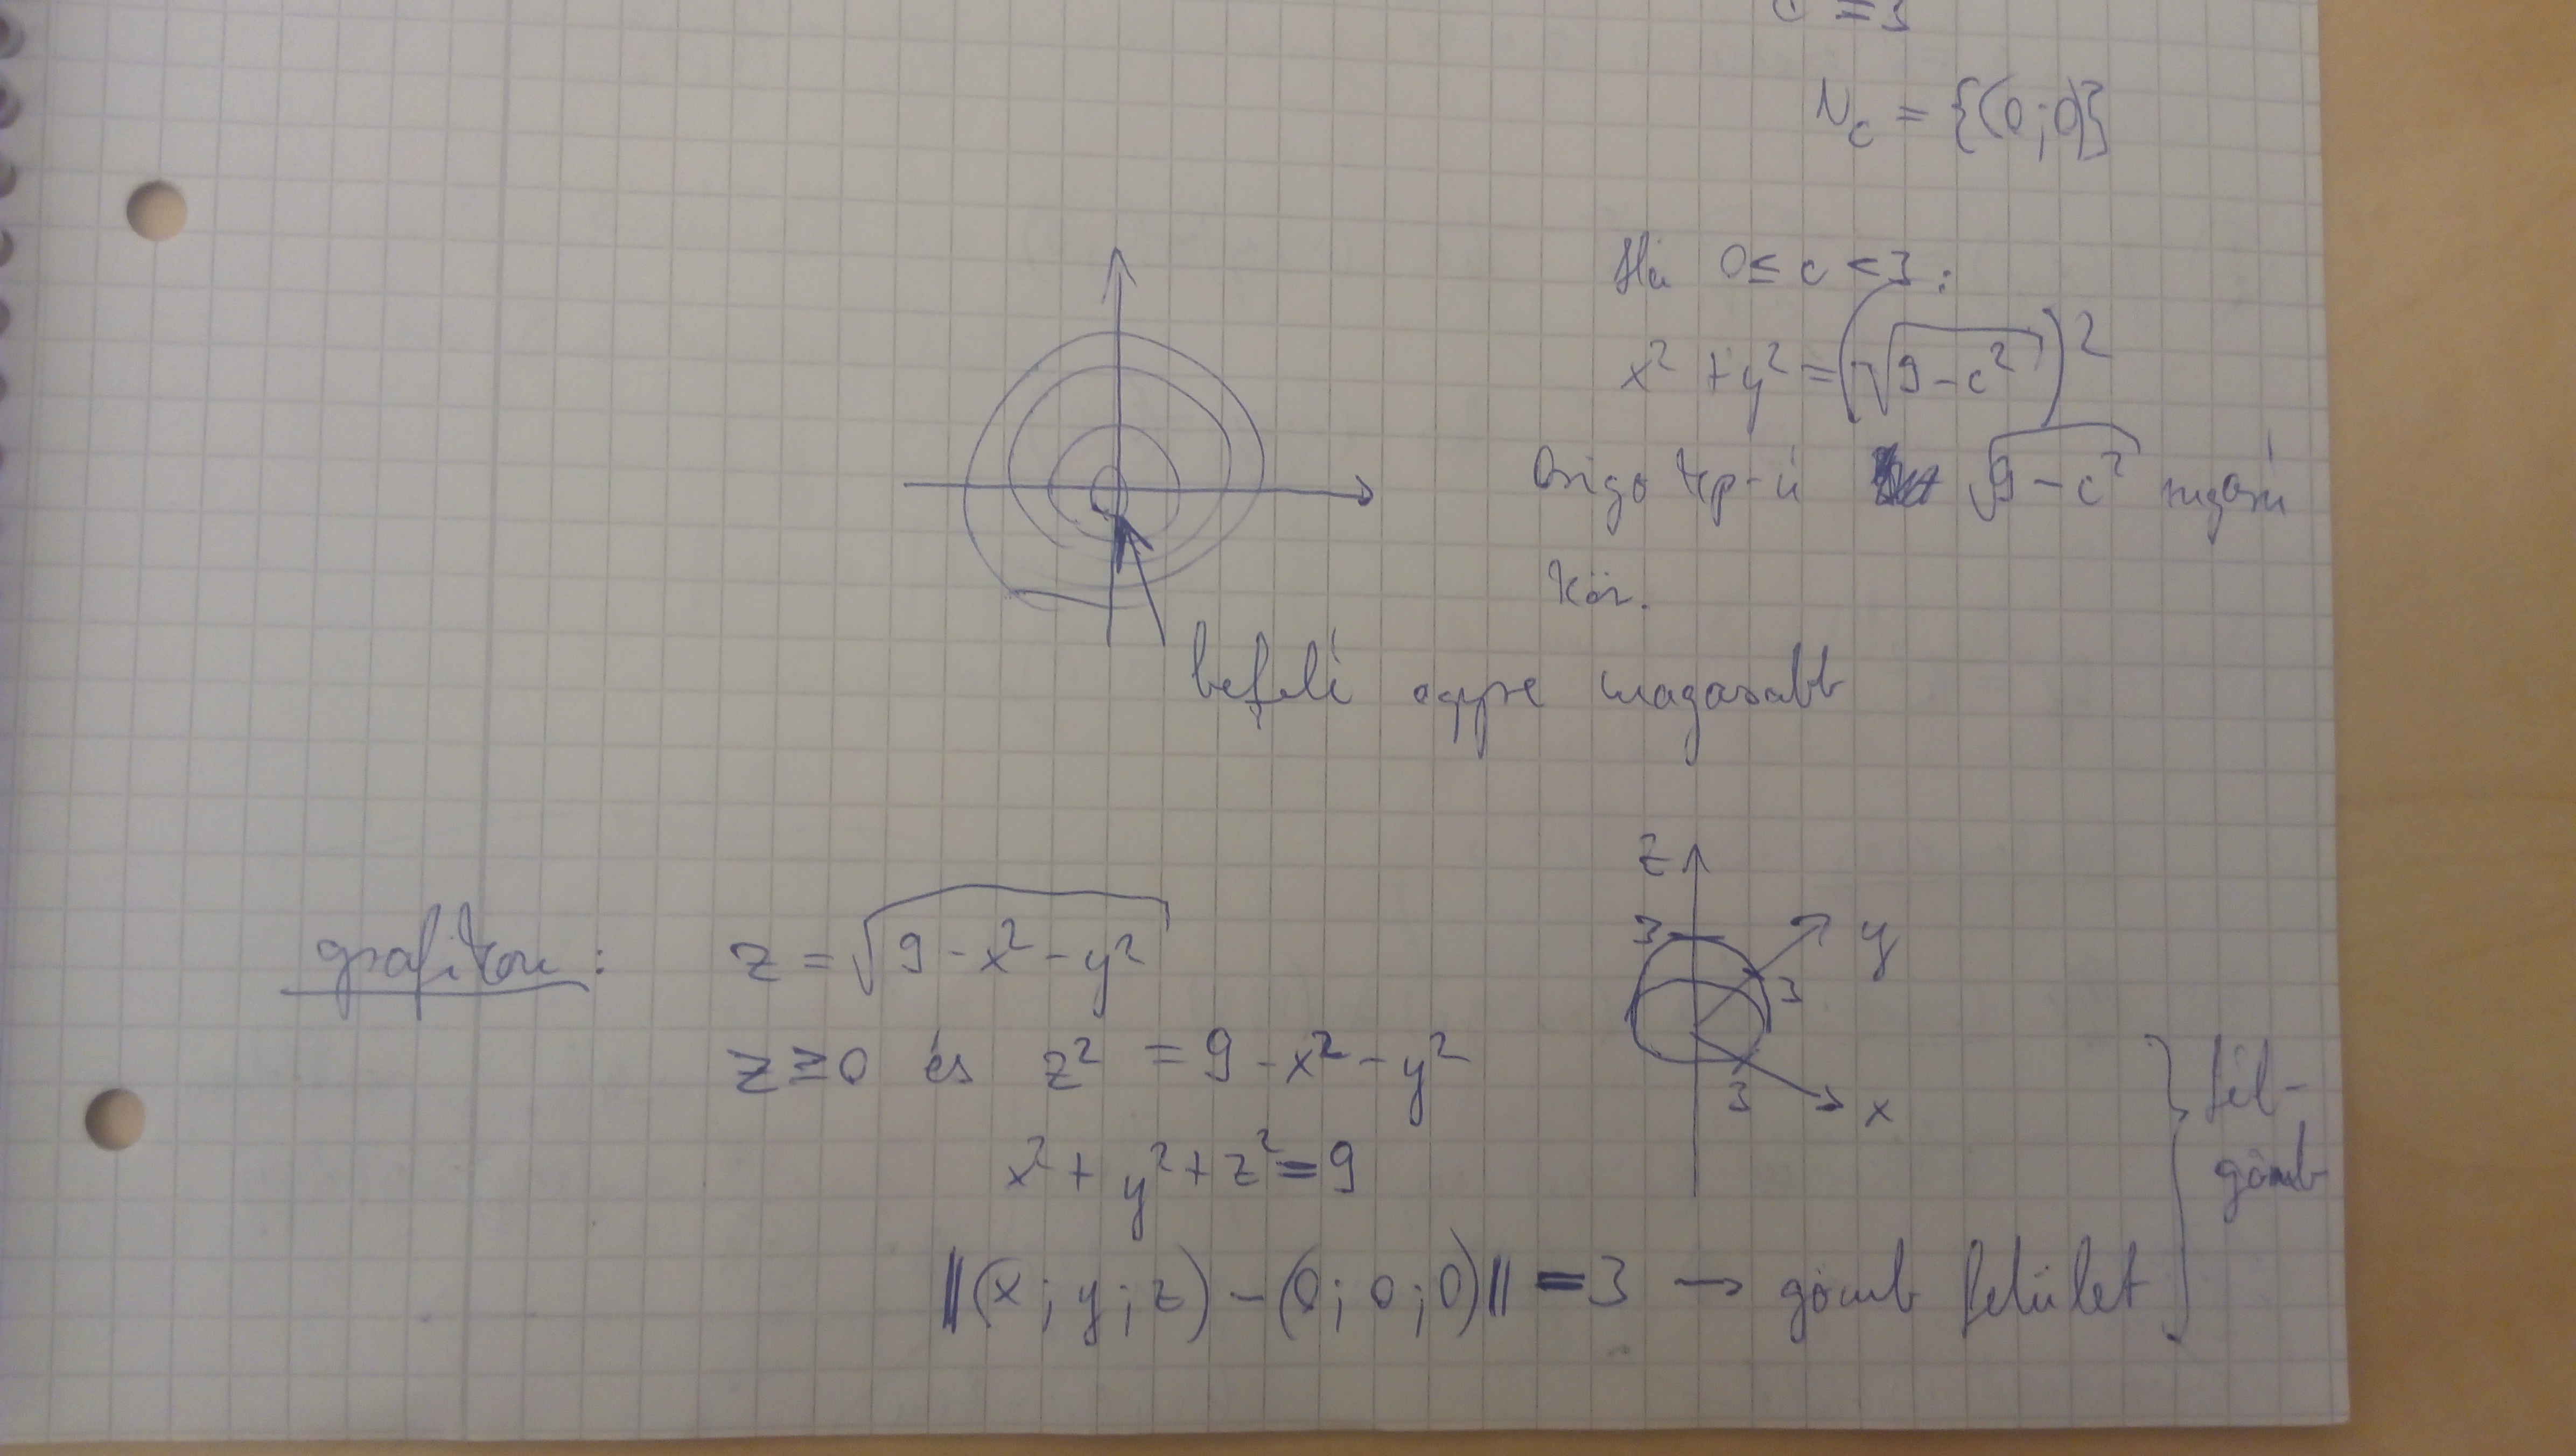 c = 3
N_c = {(0;0)}
Ha 0 ≤ c < 3:
x² + y² = (√(9-c²))²
Origo kp-ú √(9-c²) sugarú
kör.
befelé egyre magasabb
z
3
y
3
3
x
grafikon: z = √(9-x²-y²)
z ≥ 0 és z² = 9-x²-y²
x² + y² + z² = 9
||(x;y;z) - (0;0;0)|| = 3 → gömb felület
fél-
gömb